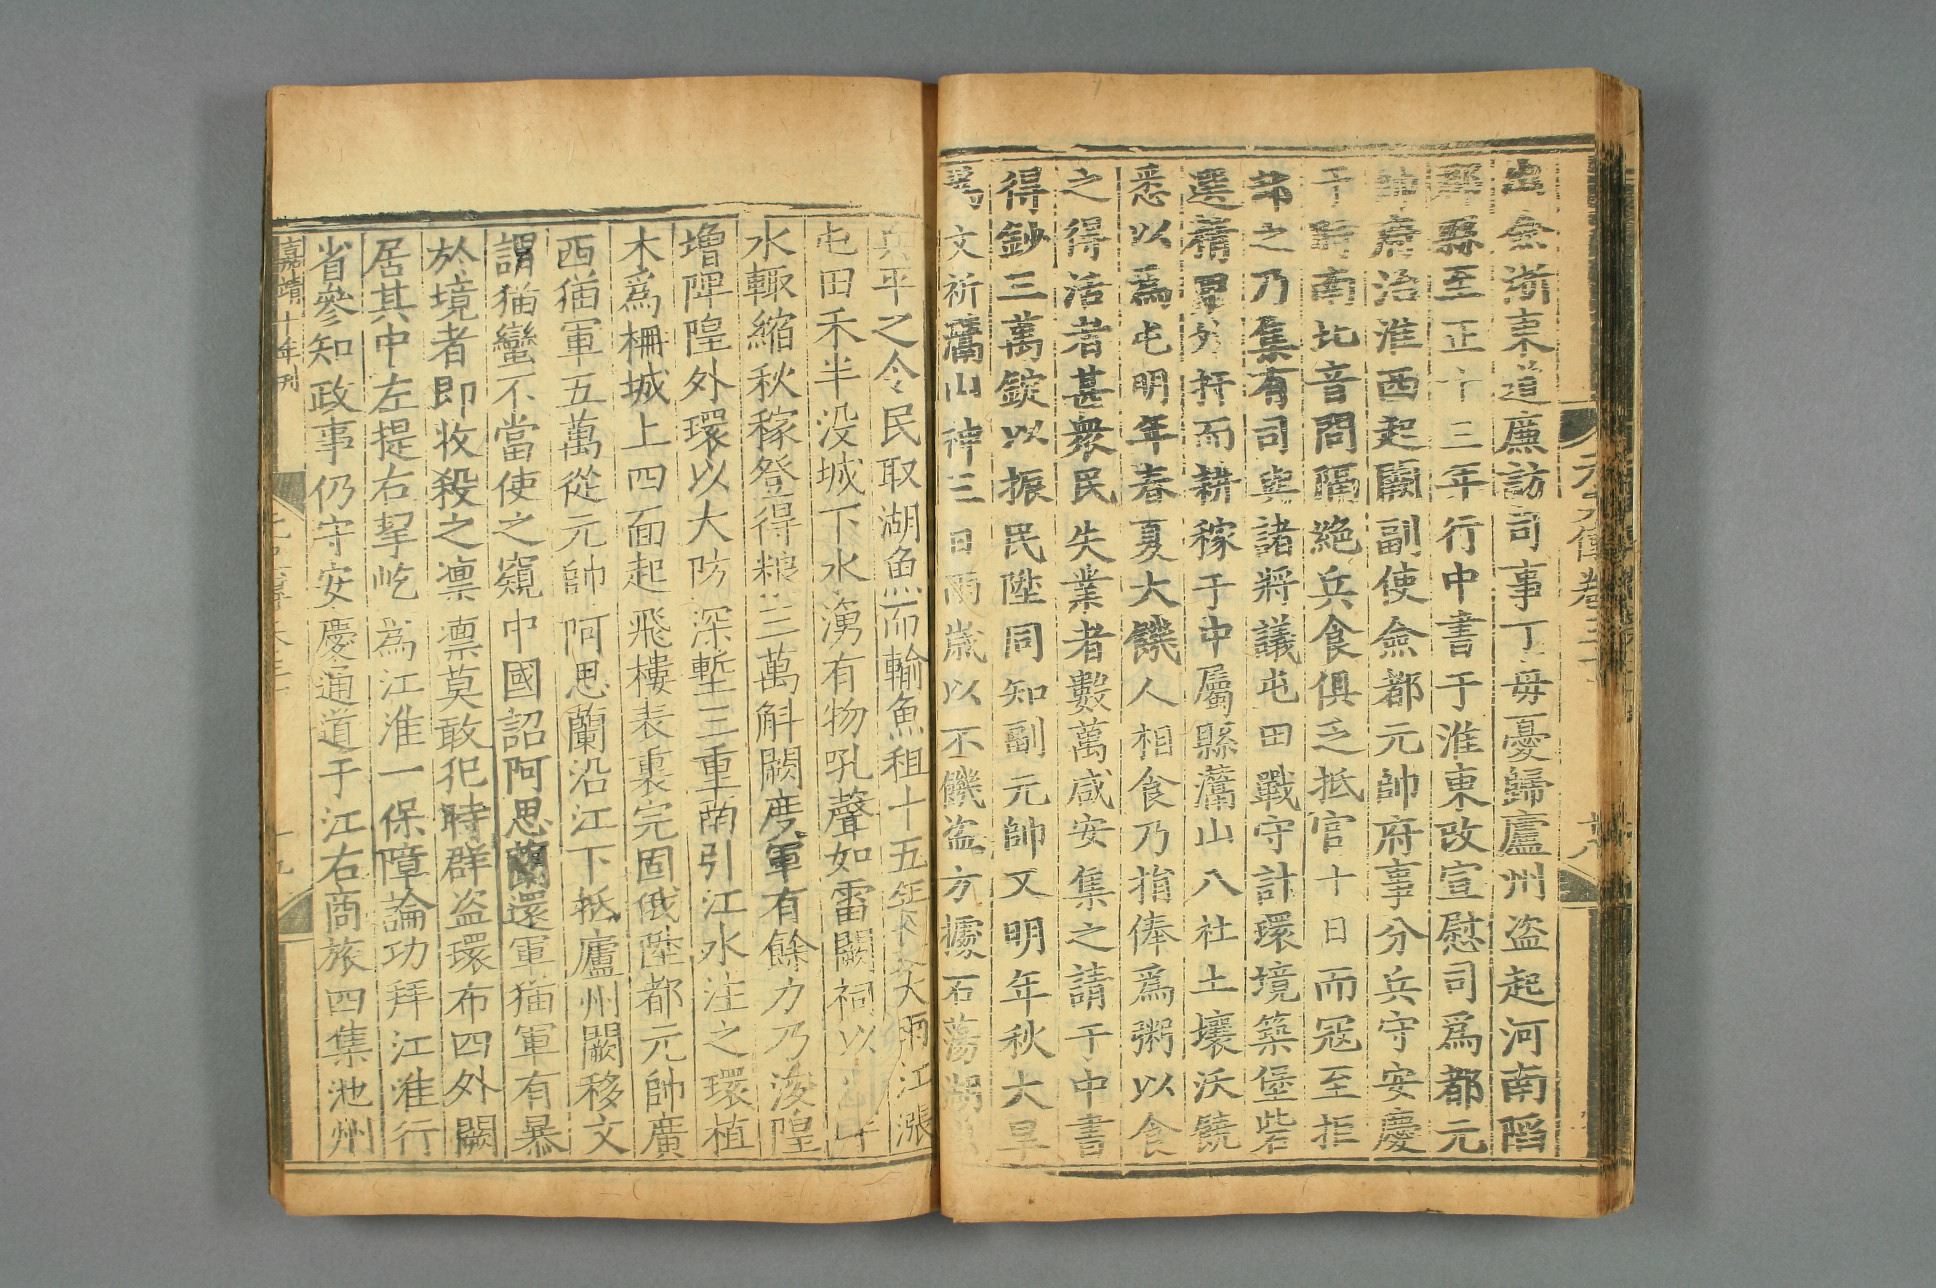 出僉浙東道廉訪司事丁毋憂歸廬州盗起河南䧟
郡縣至正十三年行中書于淮東改宣慰司爲都元
帥府治淮西起闕副使僉都元帥府事分兵守安慶
于時南北音問隔絶兵食俱乏抵官十日而冦至拒
却之乃集有司與諸將議屯田戰守計環境築堡砦
選精甲外扞而耕稼于中屬縣灊山八社土壤沃饒
悉以爲屯明年春夏大饑人相食乃捐俸爲粥以食
之得活者甚衆民失業者數萬咸安集之請于中書
得鈔三萬錠以振民陞同知副元帥又明年秋大旱
爲文祈灊山神三日雨歲以不饑盗方據石蕩湖出
兵平之令民取湖魚而輸魚租十五年夏大雨江漲
屯田禾半没城下水湧有物吼聲如雷闕祠以少牢
水輙縮秋稼登得粮三萬斛闕度軍有餘力乃浚隍
增陴隍外環以大防深塹三重南引江水注之環植
木爲柵城上四面起飛樓表裏完固俄陞都元帥廣
西猫軍五萬從元帥阿思蘭沿江下抵廬州闕移文
謂猫蠻不當使之窺中國詔阿思蘭還軍猫軍有暴
於境者即收殺之凛凛莫敢犯時群盗環布四外闕
居其中左提右挈屹爲江淮一保障論功拜江淮行
省參知政事仍守安慶通道于江右商旅四集池州
嘉靖十年刊